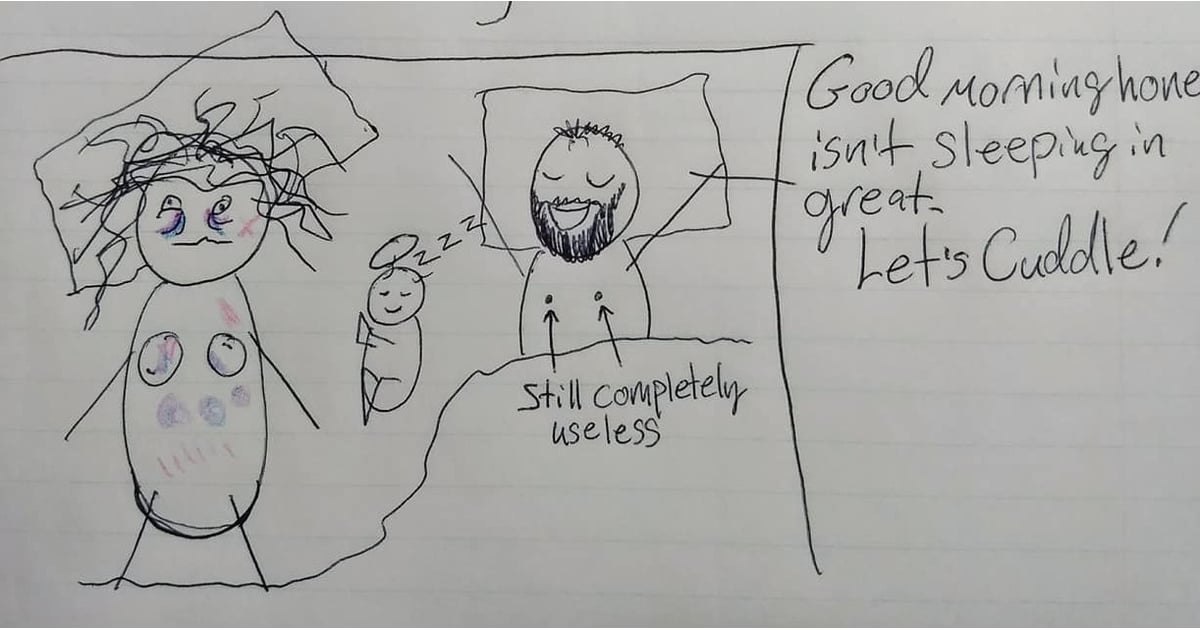 zzzz
Good morning hone
isn't sleeping in
great.
Let's Cuddle!
Still completely
useless